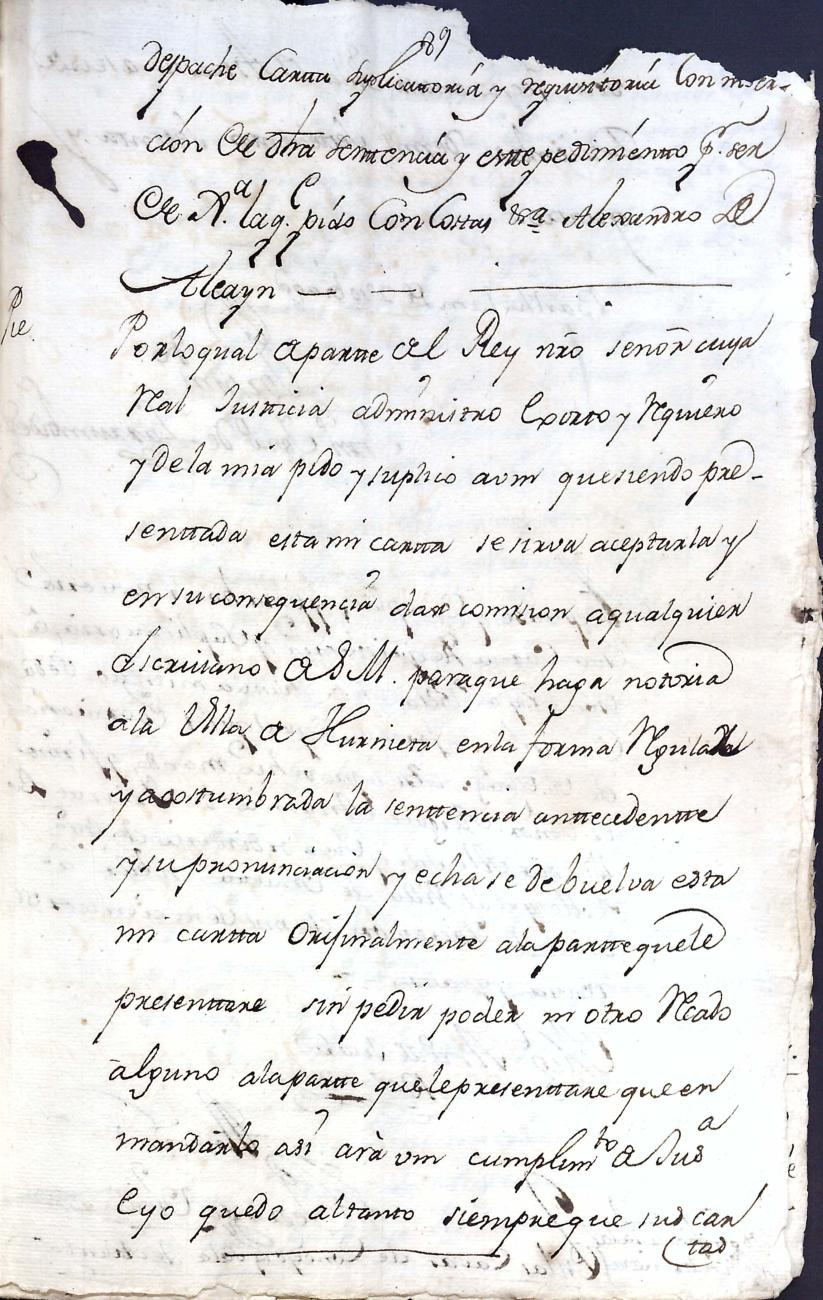 89
despache Cartta suplicattoria y requisitoria Con inser-
ción de dha senttencia y estte pedimientto pr. ser
de Xa. laq. pido Con Costas &a Alexandro de
Alcayn
Pie
Porloqual de partte del Rey nrō señor cuya
Real Justticia administro Exorto y Requiero
y de la mia pido y suplico avm que siendo pre-
senttada esta mi cartta se sirva aceptarla y
en su consequencia dar comision a qualquier
escrivano de S M. paraque haga nottoria
ala Villa de Hurnieta enla forma Regular
y acostumbrada la senttencia anttecedentte
y su pronunciacion y echa se debuelva esta
mi cartta Originalmente ala partte quele
presenttare sin pedir poder ni otro Rcado
alguno ala partte que le presenttare que en
mandarlo asi ará vm cumplimto de Jusa
Eyo quedo altanto siempre que sus car
tas